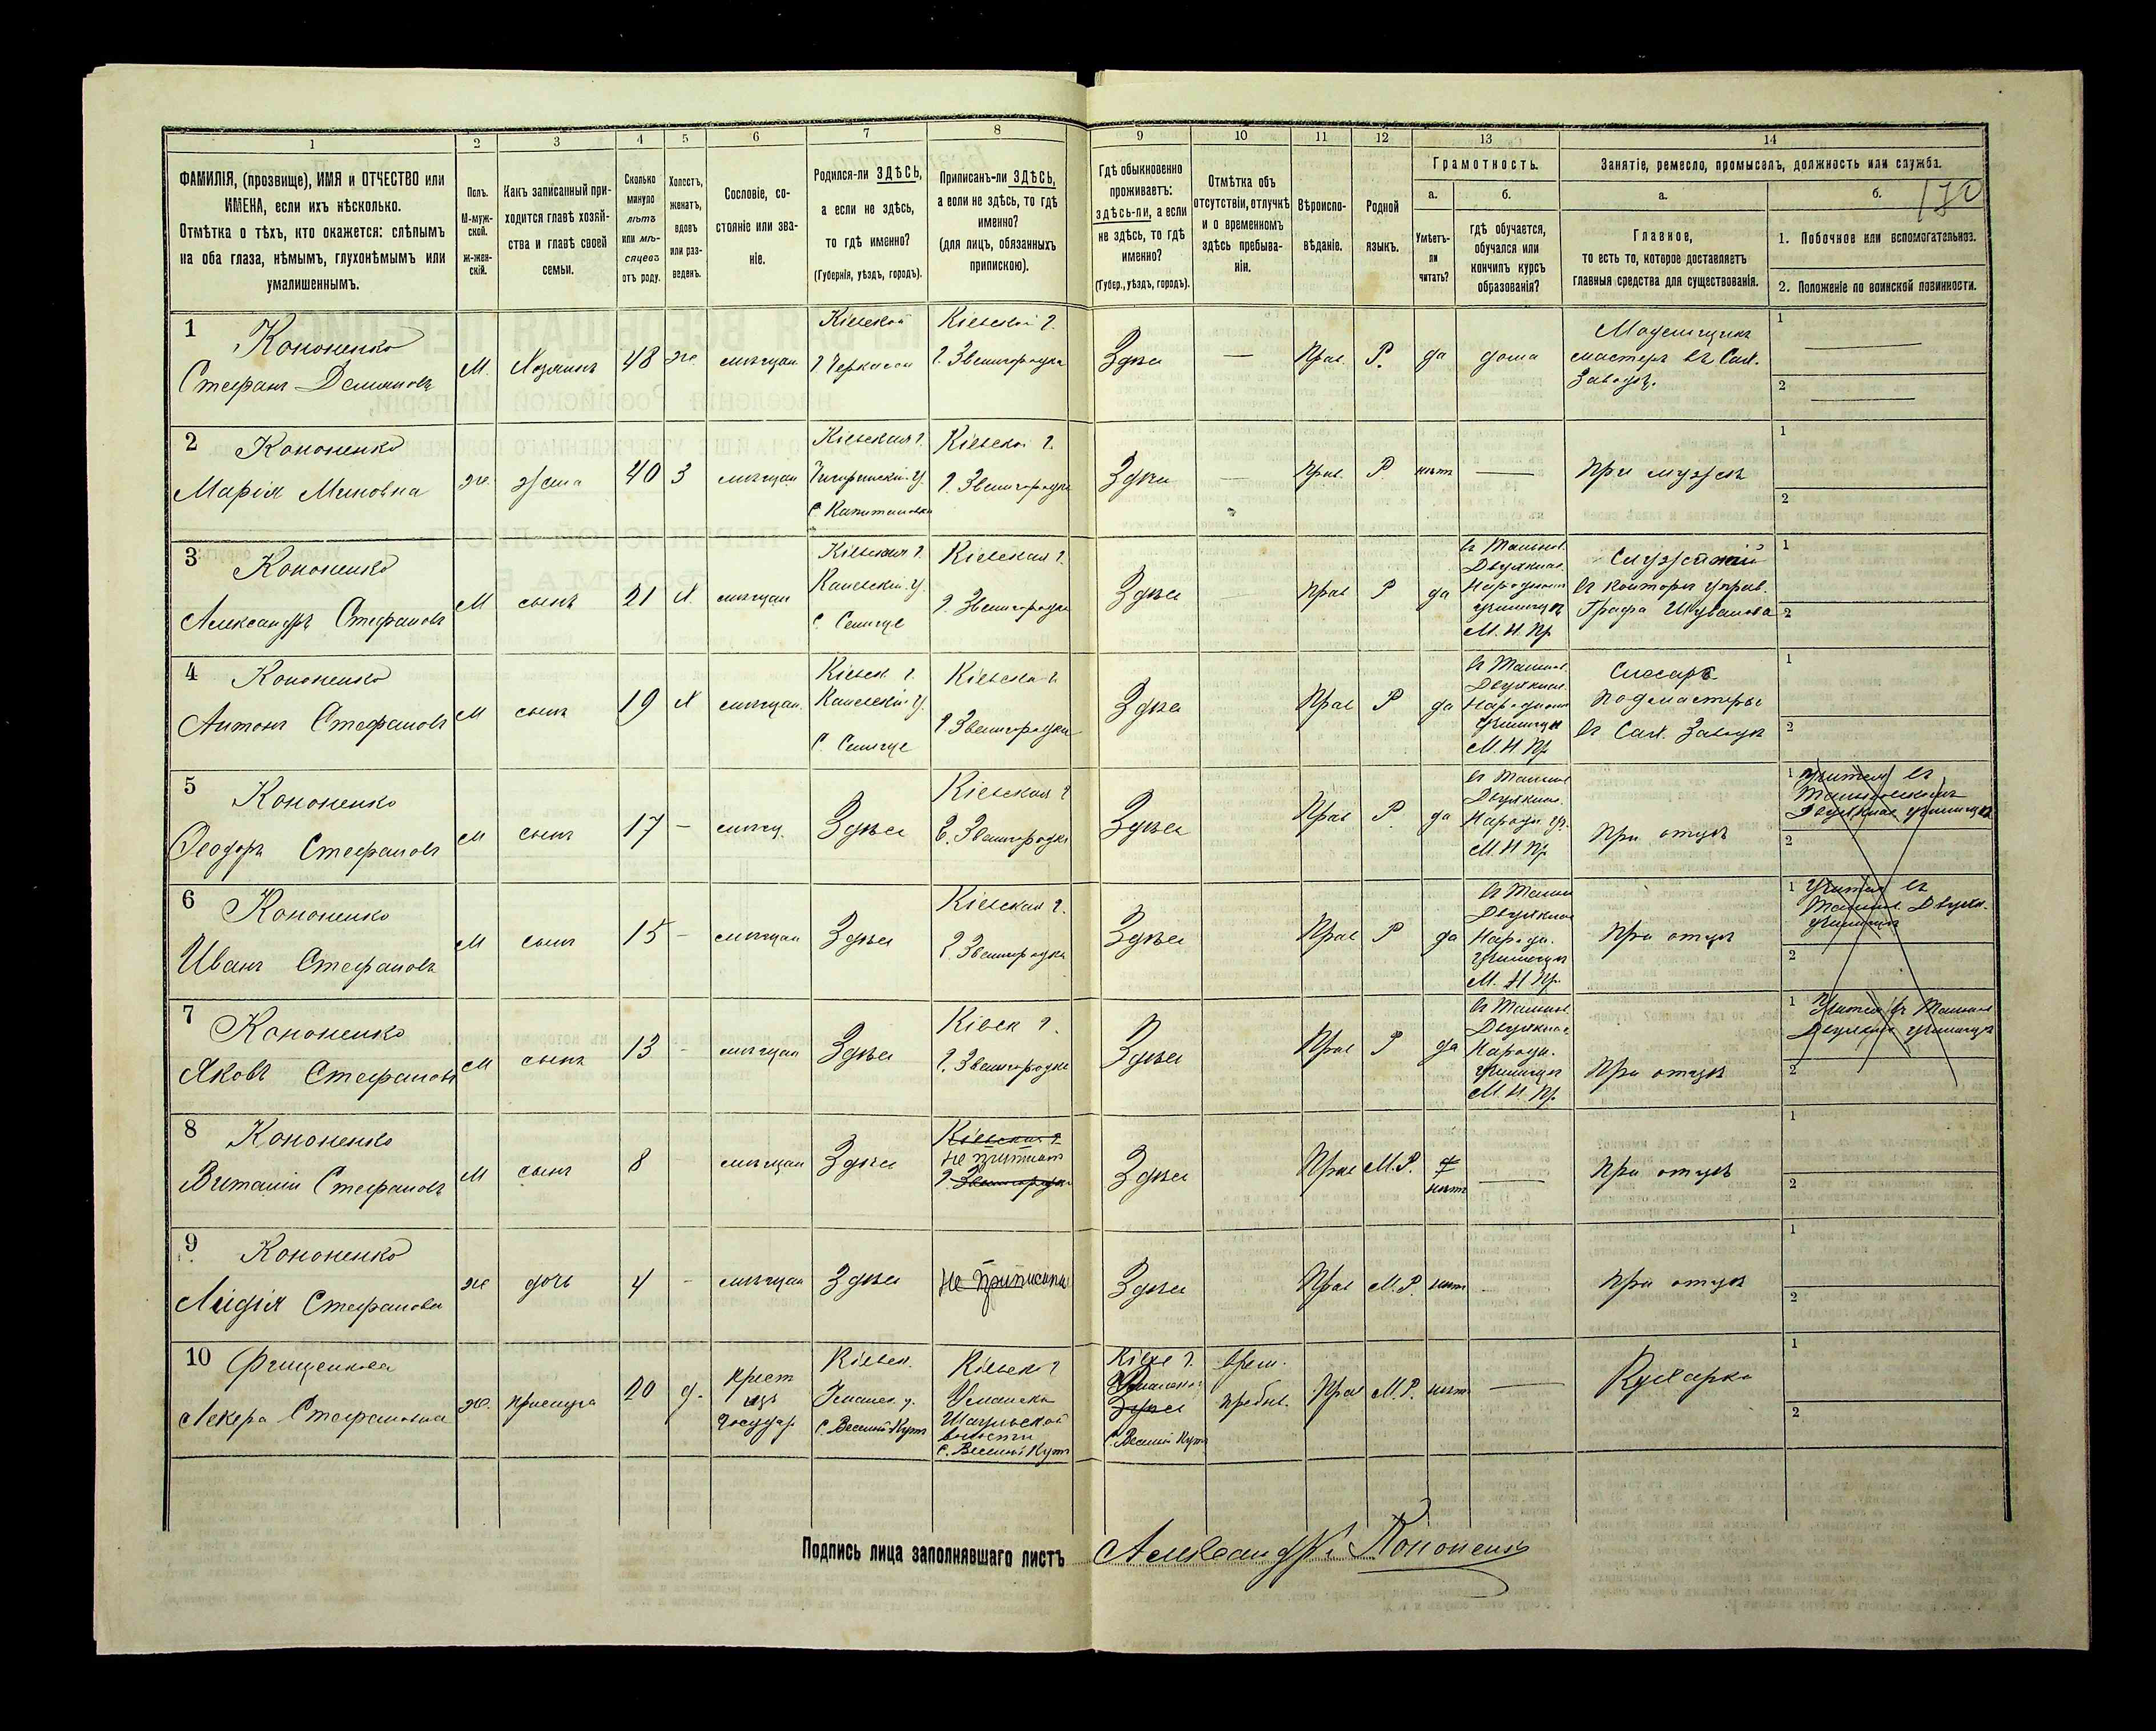 1
2
3
4
5
6
7
8
9
10
11
12
13
14
ФАМИЛІЯ, (прозвище), ИМЯ и ОТЧЕСТВО или
ИМЕНА, если ихъ нѣсколько.
Отмѣтка о тѣхъ, кто окажется: слѣпымъ
на оба глаза, нѣмымъ, глухонѣмымъ или
умалишеннымъ.
Полъ.
М-муж-
ской.
ж-жен-
скій.
Какъ записанный при-
ходится главѣ хозяй-
ства и главѣ своей
семьи.
Сколько
минуло
лѣтъ
или мѣ-
сяцевъ
отъ роду.
Холостъ,
женатъ,
вдовъ
или раз-
веденъ.
Сословіе, со-
стояніе или зва-
ніе.
Родился-ли ЗДѢСЬ,
а если не здѣсь,
то гдѣ именно?
(Губернія, уѣздъ, городъ).
Приписанъ-ли ЗДѢСЬ,
а если не здѣсь, то гдѣ
именно?
(для лицъ, обязанныхъ
припискою).
Гдѣ обыкновенно
проживаетъ:
здѣсь-ли, а если
не здѣсь, то гдѣ
именно?
(Губер., уѣздъ, городъ).
Отмѣтка объ
отсутствіи, отлучкѣ
и о временномъ
здѣсь пребыва-
ніи.
Вѣроиспо-
вѣданіе.
Родной
языкъ.
Грамотность.
а.
Умѣетъ-
ли
читать?
б.
гдѣ обучается,
обучался или
кончилъ курсъ
образованія?
Занятіе, ремесло, промыселъ, должность или служба.
а.
Главное,
то есть то, которое доставляетъ
главныя средства для существованія.
б.
1. Побочное или вспомогательное.
2. Положеніе по воинской повинности.
1
Кононенко
Стефанъ Демьяновъ
М.
Хозяинъ
48
же.
мѣщан
Кіевской
г Черкасы
Кіевской г.
г. Звенигородка
Здѣсь
—
Прав.
Р.
да
дома
Модельщикъ
мастеръ въ Сах.
Заводѣ.
1
2
2
Кононенко
Марія Миновна
же.
жена
40
З
мѣщан
Кіевская г.
Чигиринскій у.
с. Капитановка
Кіевской г.
г. Звенигородка
Здѣсь
—
Прав.
Р.
нѣтъ
—
При мужѣ
1
2
3
Кононенко
Александръ Стефановъ
М
сынъ
21
Х.
мѣщан
Кіевская г.
Каневскій у.
с. Селище
Кіевская г.
г. Звенигородка
Здѣсь
Прав
Р
да
въ Тальнов.
Двухклас.
Народномъ
училищѣ
М. Н. Пр.
Служащій
въ конторѣ управ.
Графа Шувалова
1
2
4
Кононенко
Антонъ Стефановъ
М
сынъ
19
Х
мѣщан.
Кіевск г.
Каневскій у.
с. Селище
Кіевска г
г. Звенигородка
Здѣсь
Прав
Р
да
въ Тальнов.
Двухклас.
Народномъ
училищѣ
М. Н. Пр.
Слесарь
подмастерье
въ Сах. Заводѣ
1
2
5
Кононенко
Ѳеодоръ Стефановъ
М
сынъ
17
–
мѣщ.
Здѣсь
Кіевская г
г. Звенигородка
Здѣсь
Прав
Р.
да
въ Тальнов
Двухклас.
Народн. уч.
М. Н. Пр.
При отцѣ
1
Двухклас училищѣ
2
6
Кононенко
Иванъ Стефановъ
М
сынъ
15
–
мѣщан
Здѣсь
Кіевская г.
г. Звенигородка
Здѣсь
Прав
Р
да
въ Тальн
Двухклас
Народн.
училищѣ
М. Н. Пр.
При отцѣ
1
2
7
Кононенко
Яковъ Стефановъ
М
сынъ
13
–
мѣщан
Здѣсь
Кіевск г.
г. Звенигородка
Здѣсь
Прав
Р
да
въ Тальнов.
Двухклас
Народн.
училищѣ
М. Н. Пр.
При отцѣ
1
2
8
Кононенко
Виталій Стефановъ
М
сынъ
8
–
мѣщан
Здѣсь
Кіевская г.
не приписанъ
г. Звенигородка
Здѣсь
Прав
М.Р.
нѣтъ
—
При отцѣ
1
2
9
Кононенко
Лидія Стефанова
же
дочь
4
–
мѣщан
Здѣсь
не приписана
Здѣсь
Прав
М.Р.
нѣтъ
При отцѣ
1
2
10
Стефановна
же.
прислуга
20
д.
крест
изъ
государ.
Кіевск.
Уманск. у.
с. Веселый Кутъ
Кіевск г
Уманска
волости
с. Веселый Кутъ
Кіевс г.
Здѣсь
с. Веселый Кутъ
врем.
пребыв.
Прав
М.Р.
нѣтъ
—
Кухарка
1
2
Подпись лица заполнявшаго листъ
Александръ Кононенко